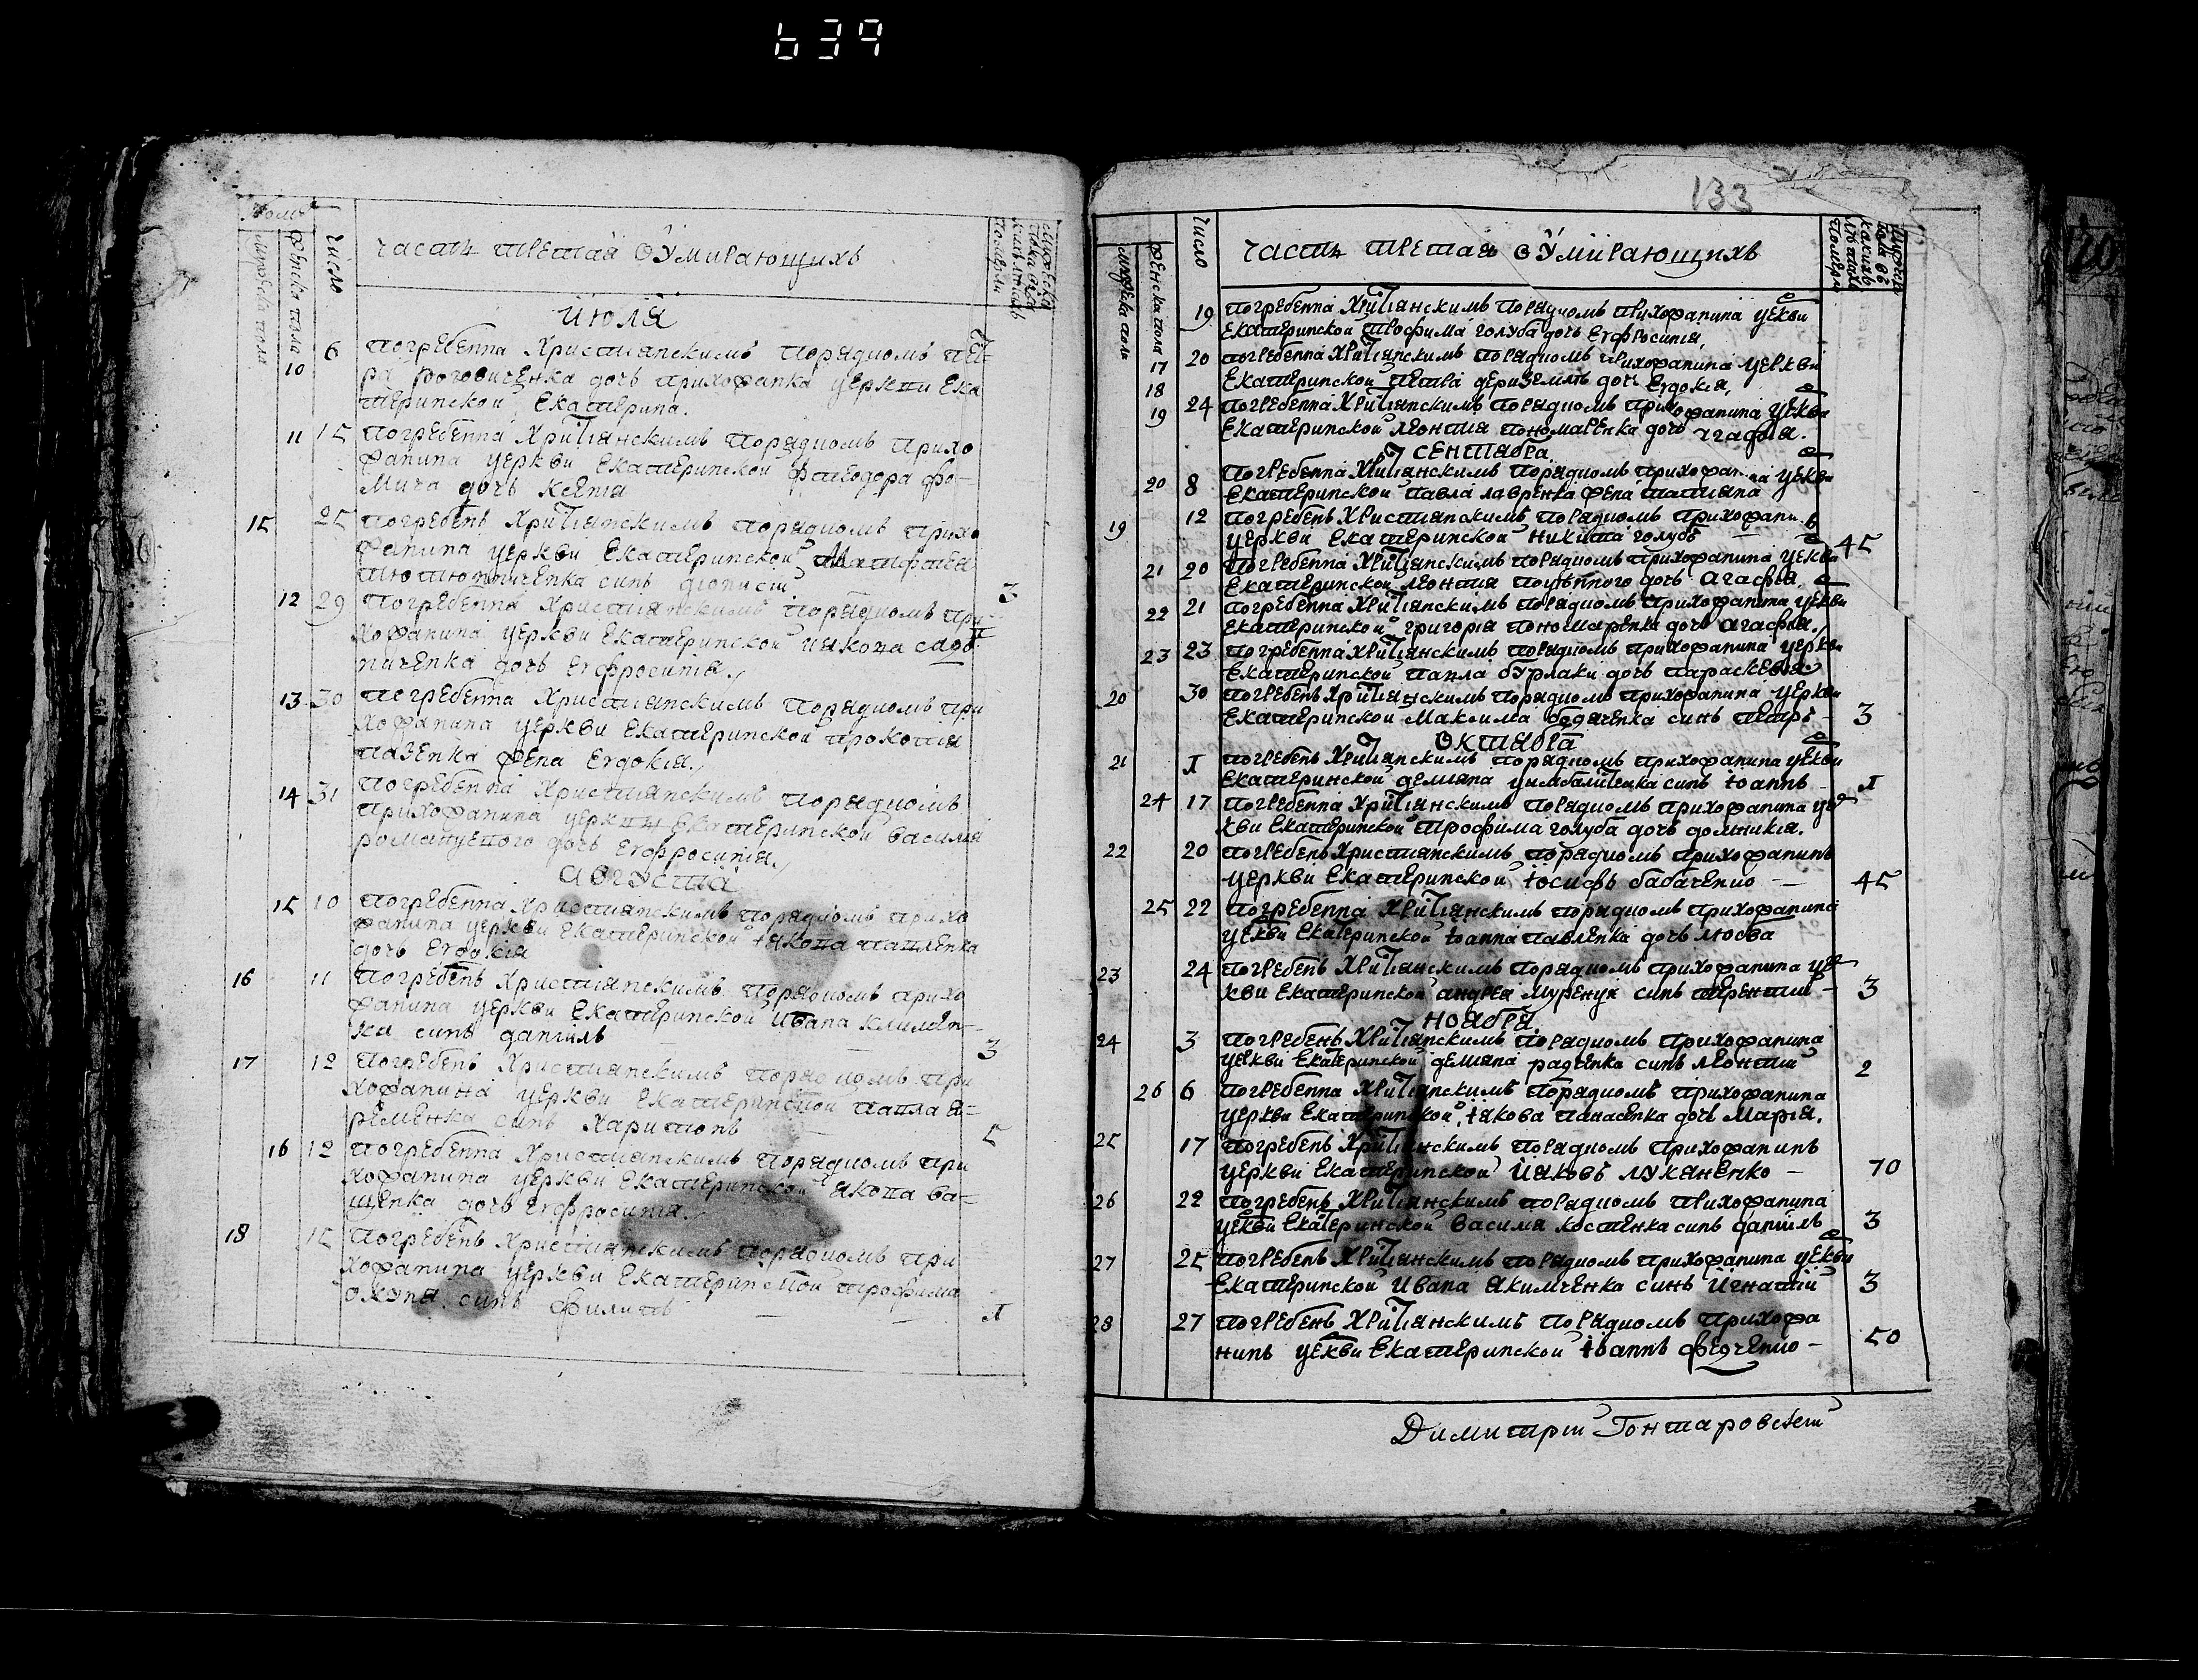 639
часть третая о умирающихъ
число
июля
10 6 погребенна христианскимъ порядкомъ пет-
ра роговиченка дочь прихожанка церкви ека
теринской екатерина.
11 15 погребенна христианскимъ порядкомъ прихо
жанина церкви екатеринской феодора фо-
мича дочь ксенія
15 25 погребенъ христианскимъ порядкомъ прихо
жанина церкви екатеринской
синъ діонисій 3
12 29 погребенна христианскимъ порядкомъ при-
хожанина церкви екатеринской иякова
ниченка дочь евфросинія
13 30 погребенна христианскимъ порядкомъ при
хожанина церкви екатеринской прокопія
пазенка жена евдокія
14 31 погребенна христианскимъ порядкомъ
прихожанина церкви екатеринской василія
романуетого дочь евфросинія
августа
15 10 погребенна христианскимъ порядкомъ прихо
жанина церкви екатеринской іякова павленка
дочь евдокія
16 11 погребенъ христианскимъ порядкомъ прихо
жанина церкви екатеринской ивана климен-
ка синъ даніилъ 3
17 12 погребенъ христианскимъ порядкомъ при
хожанина церкви екатеринской павла я-
ременка синъ харитонъ 5
16 12 погребенна христианскимъ порядкомъ при
хожанина церкви екатеринской якова ва-
щенка дочь евфросинія
18 15 погребенъ христианскимъ порядкомъ при
хожанина церкви екатеринской трофима
синъ филипъ 1
133
число
часть третая о умирающихъ
19 погребенна христианскимъ порядкомъ прихожанина церкви
екатеринской трофима голуба дочь евфросинія
17 20 погребенна христианскимъ порядкомъ прихожанина церкви
18 екатеринской петра деризгмлѣ дочь евдокія
19 24 погребенна христианскимъ порядкомъ прихожанина церкви
екатеринской леонтія пономаренка дочь агафія.
сентабра
20 8 погребенна христианскимъ порядкомъ прихожанина церкви
екатеринской павла лавренка жена татіяна
19 12 погребенъ христианскимъ порядкомъ прихожанинъ
церкви екатеринской никита голубъ 45
21 20 погребенна христианскимъ порядкомъ прихожанина церкви
екатеринской леонтія дочь агафія
22 21 погребенна христианскимъ порядкомъ прихожанина церкви
екатеринской григорія пономаренка дочь агафія
23 23 погребенна христианскимъ порядкомъ прихожанина церкви
екатеринской павла бурлаки дочь параскевія
20 30 погребенъ христианскимъ порядкомъ прихожанина церкви
екатеринской максима бодяченка синъ петръ - 3
октабра
21 1 погребенъ христианскимъ порядкомъ прихожанина церкви
екатеринской деміяна цимбалистенка синъ іоаннъ 1
24 17 погребенна христианскимъ порядкомъ прихожанина цер
кви екатеринской трофима голуба дочь домникія.
22 20 погребенъ христианскимъ порядкомъ прихожанинъ
церкви екатеринской іосифъ бабаченко - 45
25 22 погребенна христианскимъ порядкомъ прихожанина
церкви екатеринской іоанна павленка дочь любва
23 24 погребенъ христианскимъ порядкомъ прихожанина цер
кви екатеринской андрея муренця синъ терентій - 3
ноабра
24 3 погребенъ христианскимъ порядкомъ прихожанина
церкви екатеринской деміяна радченка синъ леонтій 2
26 6 погребенна христианскимъ порядкомъ прихожанина
церкви екатеринской іякова панасенка дочь марія.
25 17 погребенъ христианскимъ порядкомъ прихожанинъ
церкви екатеринской ияковъ луканенко - 70
26 22 погребенъ христианскимъ порядкомъ прихожанина
церкви екатеринской василія костенка синъ даніилъ 3
27 25 погребенъ христианскимъ порядкомъ прихожанина церкви
екатеринской ивана якимченка синъ игнатій 3
28 27 погребенъ христианскимъ порядкомъ прихожа
нинъ церкви екатеринской іоаннъ федченко - 50
Димитрій Гонтаровскій